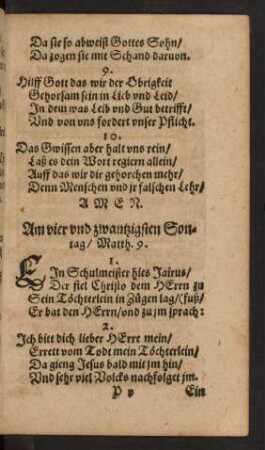 Da sie so abweist Gottes Sohn/
Da zogen sie mit Schand daruon.
9.
Hilff Gott das wir der Obrigkeit
Gehorsam sein in Lieb vnd Leid/
In dem was Leib vnd Gut betrifft/
Vnd von vns fordert vnser Pflicht.
10.
Das Gwissen aber halt vns rein/
Laß es dein Wort regiern allein/
Auff das wir dir gehorchen mehr/
Denn Menschen vnd jr falschen Lehr/
A M E N.
Am vier vnd zwantzigsten Son-
tag/ Matth. 9.
1.
EIn Schulmeister hies Jairus/
Der fiel Christo dem HErrn zu
Sein Töchterlein in Zügen lag/ (fuß/
Er bat den HErrn/ vnd zu jm sprach:
2.
Ich bitt dich lieber HErre mein/
Errett vom Todt mein Töchterlein/
Da gieng Jesus bald mit jm hin/
Vnd sehr viel Volcks nachfolget jm.
P v Ein